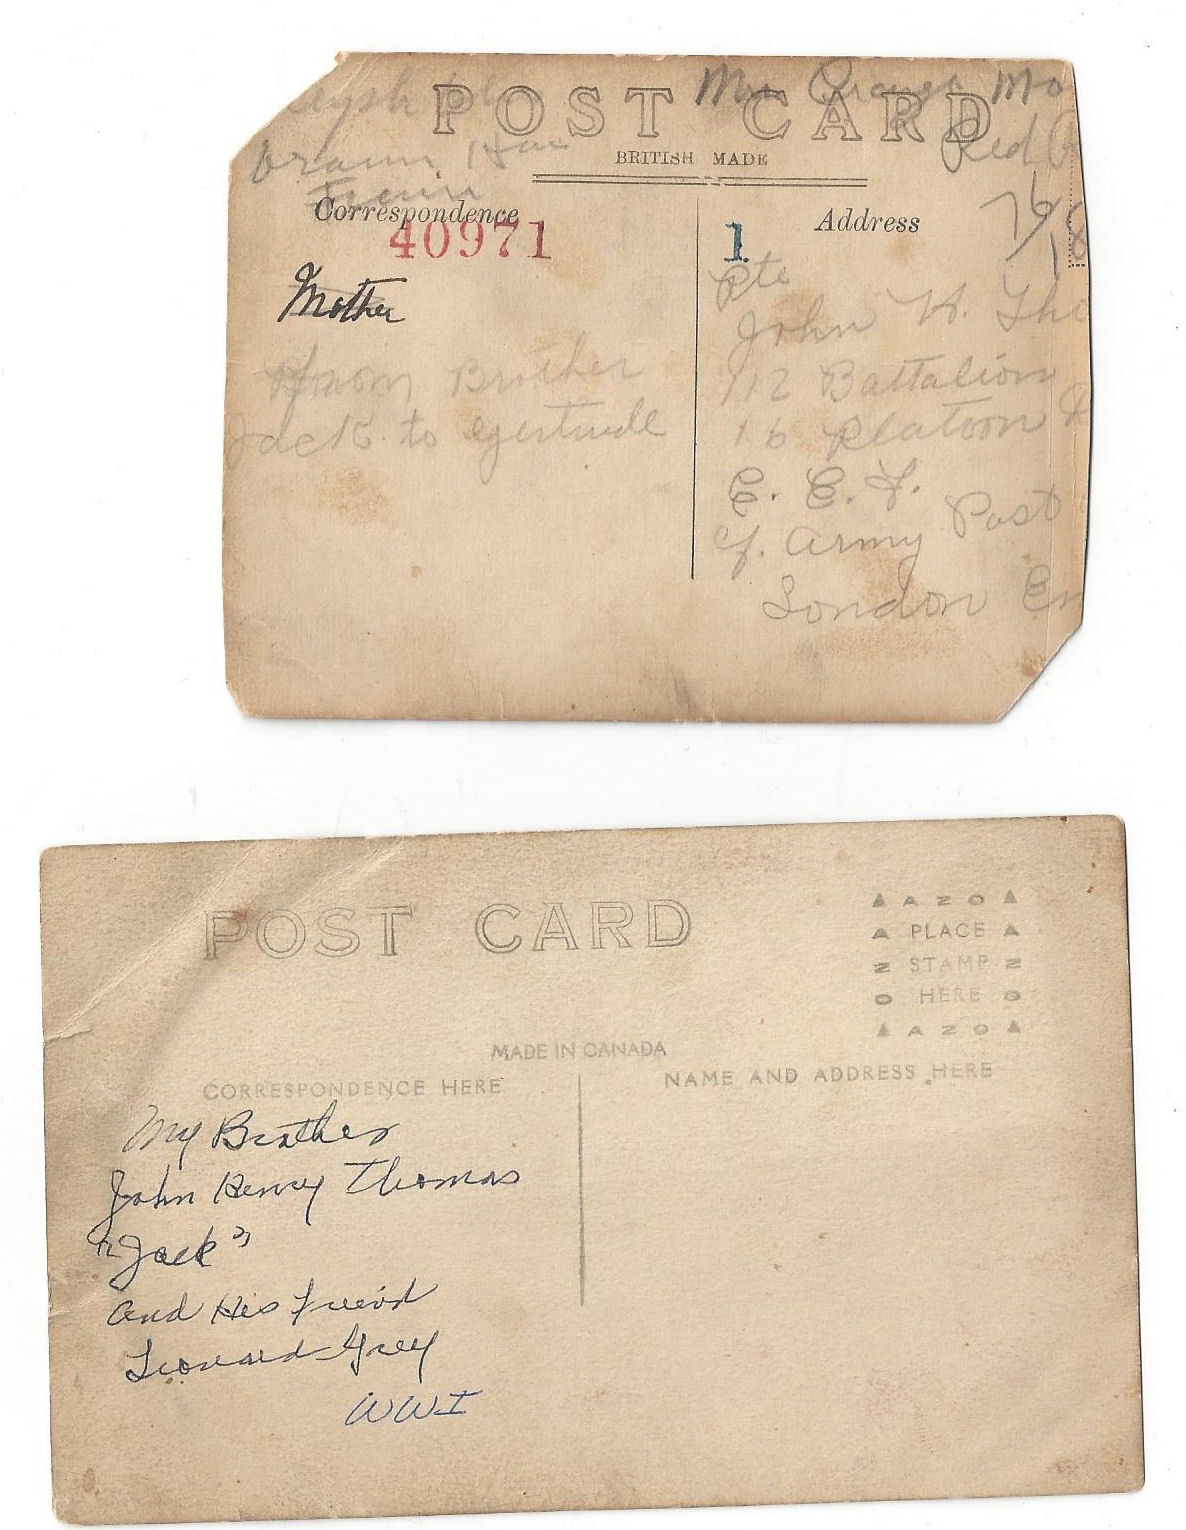 POST CARD
BRITISH MADE
Correspondence
Address
40971
1
Mother
From Brother
Jack to Gertrude
Pte
John H. Tho
112 Battalion
16 Platoon
C. E. F.
Army Post
London En
POST CARD
AZO
PLACE
STAMP
HERE
AZO
MADE IN CANADA
CORRESPONDENCE HERE
NAME AND ADDRESS HERE
My Brother
John Henry Thomas
"Jack"
and His Friend
Leonard Grey
WWI